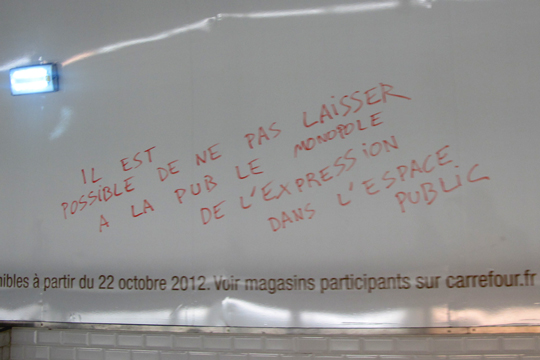 IL EST
POSSIBLE DE NE PAS LAISSER
A LA PUB LE MONOPOLE
DE L'EXPRESSION
DANS L'ESPACE
PUBLIC
nibles à partir du 22 octobre 2012. Voir magasins participants sur carrefour.fr